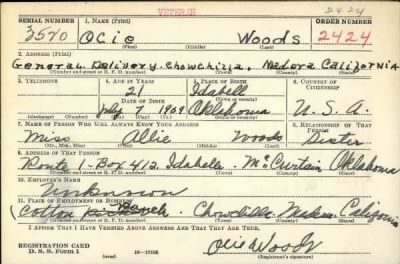 VETERAN
2424
SERIAL NUMBER 1. NAME (Print) ORDER NUMBER
3570 Ocie Woods 2424
(First) (Middle) (Last)
2. ADDRESS (Print)
General Delivery. Chowchilla. Madera California
(Number and street or R. F. D. number) (Town) (County) (State)
3. TELEPHONE 4. AGE IN YEARS 5. PLACE OF BIRTH 6. COUNTRY OF CITIZENSHIP
21 Idabell
DATE OF BIRTH (Town or county)
July 7 1909 Oklahoma U. S. A.
(Exchange) (Number) (Mo.) (Day) (Yr.) (State or country)
7. NAME OF PERSON WHO WILL ALWAYS KNOW YOUR ADDRESS 8. RELATIONSHIP OF THAT PERSON
Miss Allie Woods Sister
(Mr., Mrs., Miss) (First) (Middle) (Last)
9. ADDRESS OF THAT PERSON
Route 1-Box 412. Idabell. McCurtain Oklahoma
(Number and street or R. F. D. number) (Town) (County) (State)
10. EMPLOYER'S NAME
Unknown
11. PLACE OF EMPLOYMENT OR BUSINESS
Cotton Ranch. Chowchilla Madera California
(Number and street or R. F. D. number) (Town) (County) (State)
I AFFIRM THAT I HAVE VERIFIED ABOVE ANSWERS AND THAT THEY ARE TRUE.
REGISTRATION CARD
D. S. S. Form 1 16-17105 Ocie Woods
(Registrant's signature)